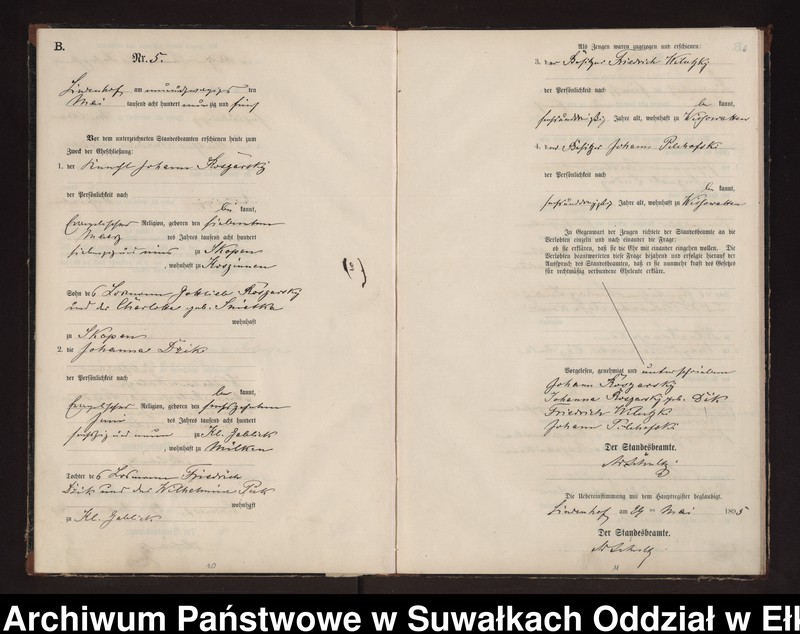 B.
Nr. 5.
Lindenhof, am neunundzwanzigsten
Mai tausend acht hundert neunzig und fünf
Vor dem unterzeichneten Standesbeamten erschienen heute zum
Zweck der Eheschließung:
1. der Knecht Johann Koszarsky
der Persönlichkeit nach
be kannt,
evangelischer Religion, geboren den siebenten
Maerz des Jahres tausend acht hundert
siebenzig und eins zu Skopen
, wohnhaft zu
Sohn des Losmann Gottlieb Koszarsky
und der Charlotte geb.
wohnhaft
zu Skopen
2. die Johanna Dzik
der Persönlichkeit nach
be kannt,
evangelischer Religion, geboren den sechszehnten
Juni des Jahres tausend acht hundert
sechszig und neun zu Kl. Gablick
, wohnhaft zu Milken
Tochter des Losmann Friedrich
Dzik und der Wilhelmine
wohnhaft
zu Kl. Gablick
10
Als Zeugen waren zugezogen und erschienen:
3. der Besitzer Friedrich
der Persönlichkeit nach
be kannt,
sechsunddreißig Jahre alt, wohnhaft zu
4. der Besitzer Johann
der Persönlichkeit nach
be kannt,
sechsunddreißig Jahre alt, wohnhaft zu
In Gegenwart der Zeugen richtete der Standesbeamte an die
Verlobten einzeln und nach einander die Frage:
ob sie erklären, daß sie die Ehe mit einander eingehen wollen. Die
Verlobten beantworteten diese Frage bejahend und erfolgte hierauf der
Ausspruch des Standesbeamten, daß er sie nunmehr kraft des Gesetzes
für rechtmäßig verbundene Eheleute erkläre.
Vorgelesen, genehmigt und unterschrieben
Johann Koszarsky
Johanna Koszarsky geb. Dzik
Friedrich
Johann
Der Standesbeamte.
Schultz
Die Uebereinstimmung mit dem Hauptregister beglaubigt.
Lindenhof am 29 ten Mai 1895
Der Standesbeamte.
Schultz
11
Archiwum Państwowe w Suwałkach Oddział w Ełk